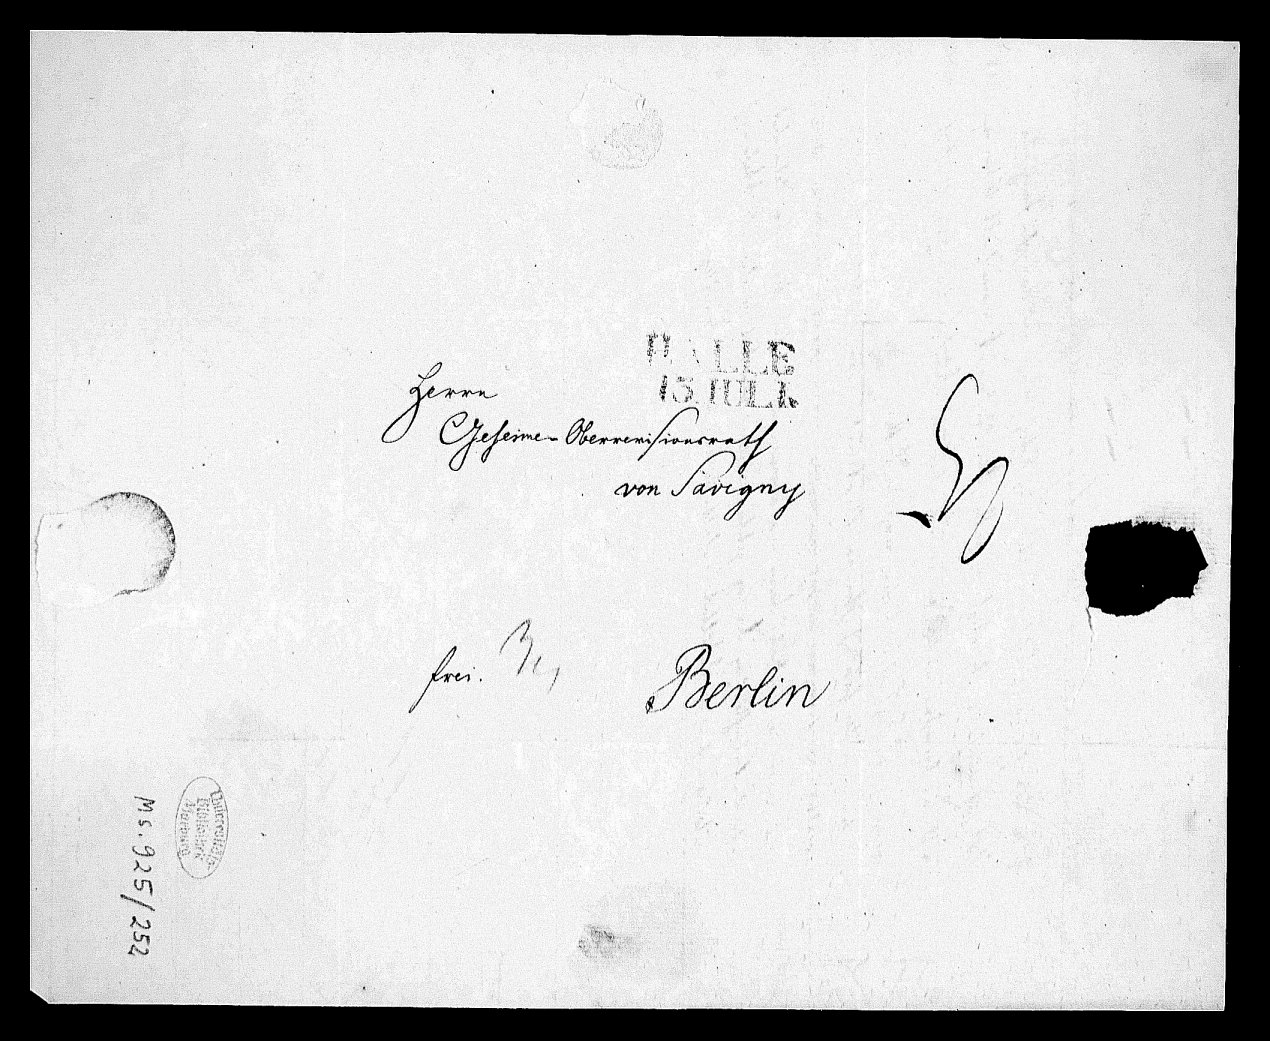 HALLE
13 JULI
Herrn
Geheime- Oberrevisionsrath
von Savigny
frei.
Berlin
Universitäts-
Bibliothek
Marburg
Ms. 925/252